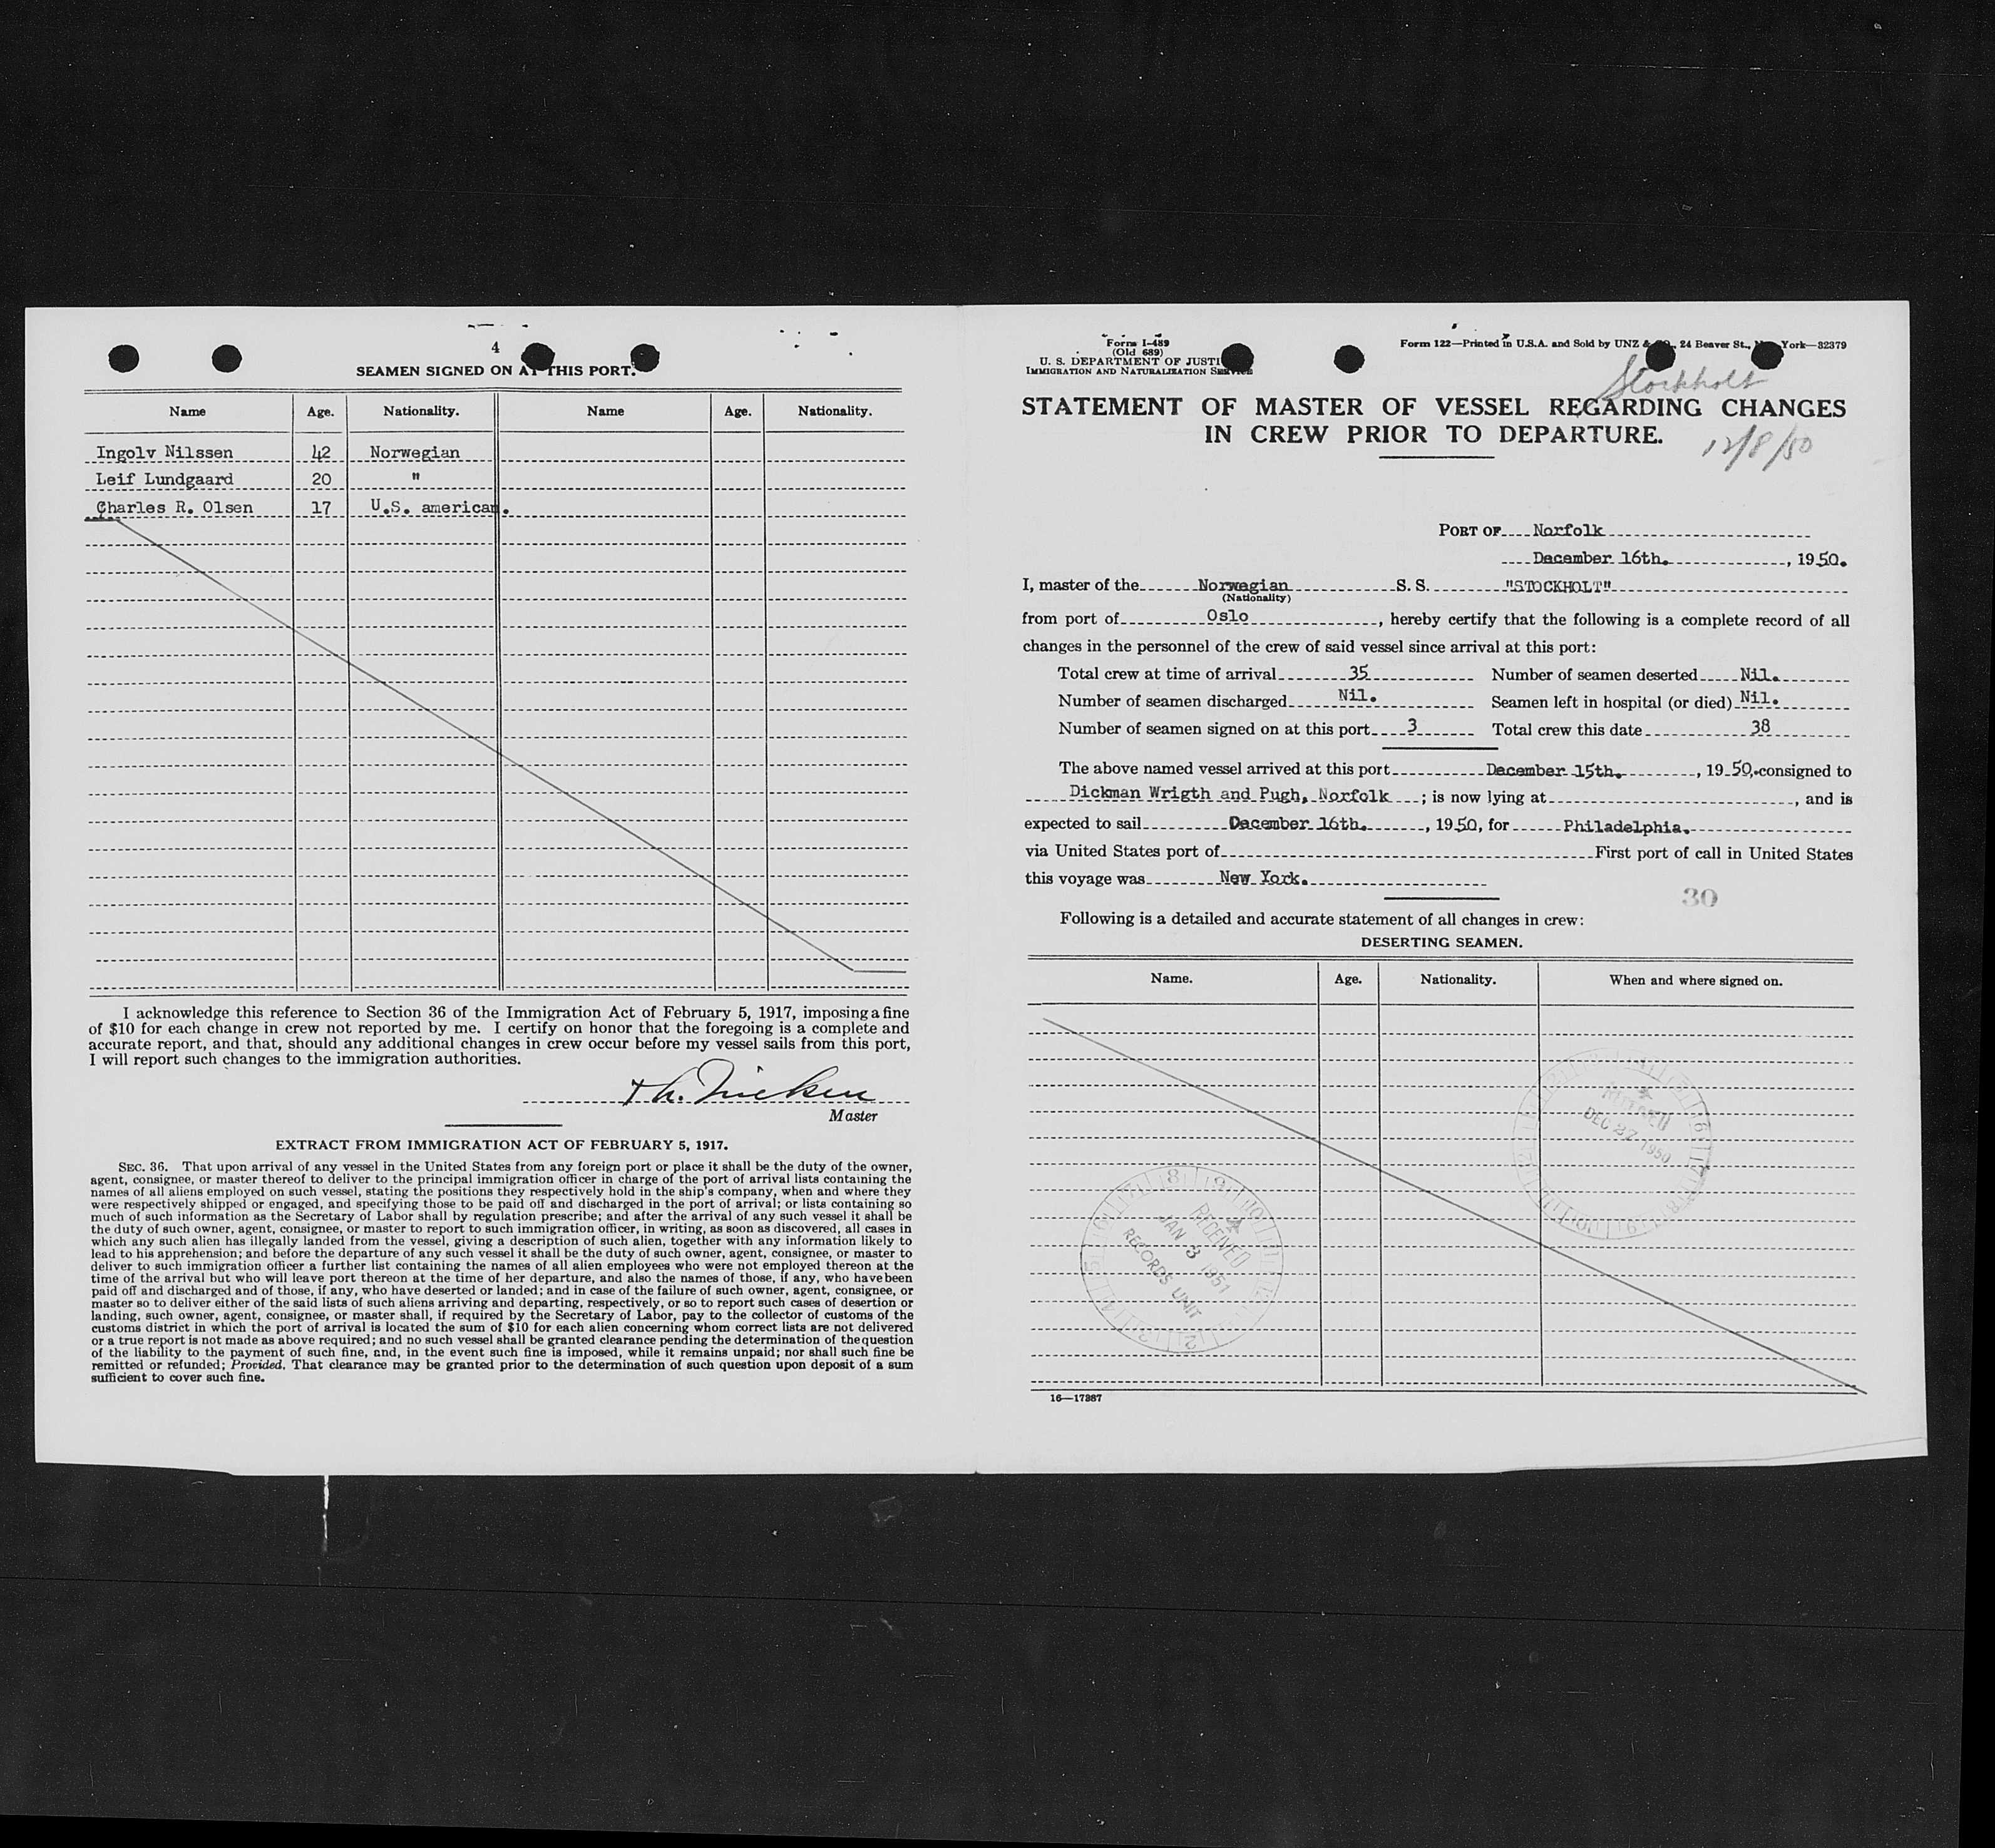 4
SEAMEN SIGNED ON AT THIS PORT.
Name Age. Nationality. Name Age. Nationality.
Ingolv Nilssen 42 Norwegian
Leif Lundgaard 20 "
Charles R. Olsen 17 U.S. american.
I acknowledge this reference to Section 36 of the Immigration Act of February 5, 1917, imposing a fine
of $10 for each change in crew not reported by me. I certify on honor that the foregoing is a complete and
accurate report, and that, should any additional changes in crew occur before my vessel sails from this port,
I will report such changes to the immigration authorities.
Master
EXTRACT FROM IMMIGRATION ACT OF FEBRUARY 5, 1917.
SEC. 36. That upon arrival of any vessel in the United States from any foreign port or place it shall be the duty of the owner,
agent, consignee, or master thereof to deliver to the principal immigration officer in charge of the port of arrival lists containing the
names of all aliens employed on such vessel, stating the positions they respectively hold in the ship's company, when and where they
were respectively shipped or engaged, and specifying those to be paid off and discharged in the port of arrival; or lists containing so
much of such information as the Secretary of Labor shall by regulation prescribe; and after the arrival of any such vessel it shall be
the duty of such owner, agent, consignee, or master to report to such immigration officer, in writing, as soon as discovered, all cases in
which any such alien has illegally landed from the vessel, giving a description of such alien, together with any information likely to
lead to his apprehension; and before the departure of any such vessel it shall be the duty of such owner, agent, consignee, or master to
deliver to such immigration officer a further list containing the names of all alien employees who were not employed thereon at the
time of the arrival but who will leave port thereon at the time of her departure, and also the names of those, if any, who have been
paid off and discharged and of those, if any, who have deserted or landed; and in case of the failure of such owner, agent, consignee, or
master so to deliver either of the said lists of such aliens arriving and departing, respectively, or so to report such cases of desertion or
landing, such owner, agent, consignee, or master shall, if required by the Secretary of Labor, pay to the collector of customs of the
customs district in which the port of arrival is located the sum of $10 for each alien concerning whom correct lists are not delivered
or a true report is not made as above required; and no such vessel shall be granted clearance pending the determination of the question
of the liability to the payment of such fine, and, in the event such fine is imposed, while it remains unpaid; nor shall such fine be
remitted or refunded; Provided, That clearance may be granted prior to the determination of such question upon deposit of a sum
sufficient to cover such fine.
Form I-489
(Old 689)
U. S. DEPARTMENT OF JUSTI
IMMIGRATION AND NATURALIZATION SERVICE
Form 122—Printed in U.S.A. and Sold by UNZ & 24 Beaver St., York—32379
Stockholt
STATEMENT OF MASTER OF VESSEL REGARDING CHANGES
IN CREW PRIOR TO DEPARTURE.
12/8/50
PORT OF Norfolk
December 16th. , 1950.
I, master of the Norwegian S. S. "STOCKHOLT"
(Nationality)
from port of Oslo , hereby certify that the following is a complete record of all
changes in the personnel of the crew of said vessel since arrival at this port:
Total crew at time of arrival 35 Number of seamen deserted Nil.
Number of seamen discharged Nil. Seamen left in hospital (or died) Nil.
Number of seamen signed on at this port 3 Total crew this date 38
The above named vessel arrived at this port December 15th. , 19 50, consigned to
Dickman Wrigth and Pugh, Norfolk ; is now lying at , and is
expected to sail December 16th. , 1950, for Philadelphia.
via United States port of First port of call in United States
this voyage was New York.
30
Following is a detailed and accurate statement of all changes in crew:
DESERTING SEAMEN.
Name. Age. Nationality. When and where signed on.
DEC 27 1950
RECEIVED
JAN 3 1951
RECORDS UNIT
16—17387